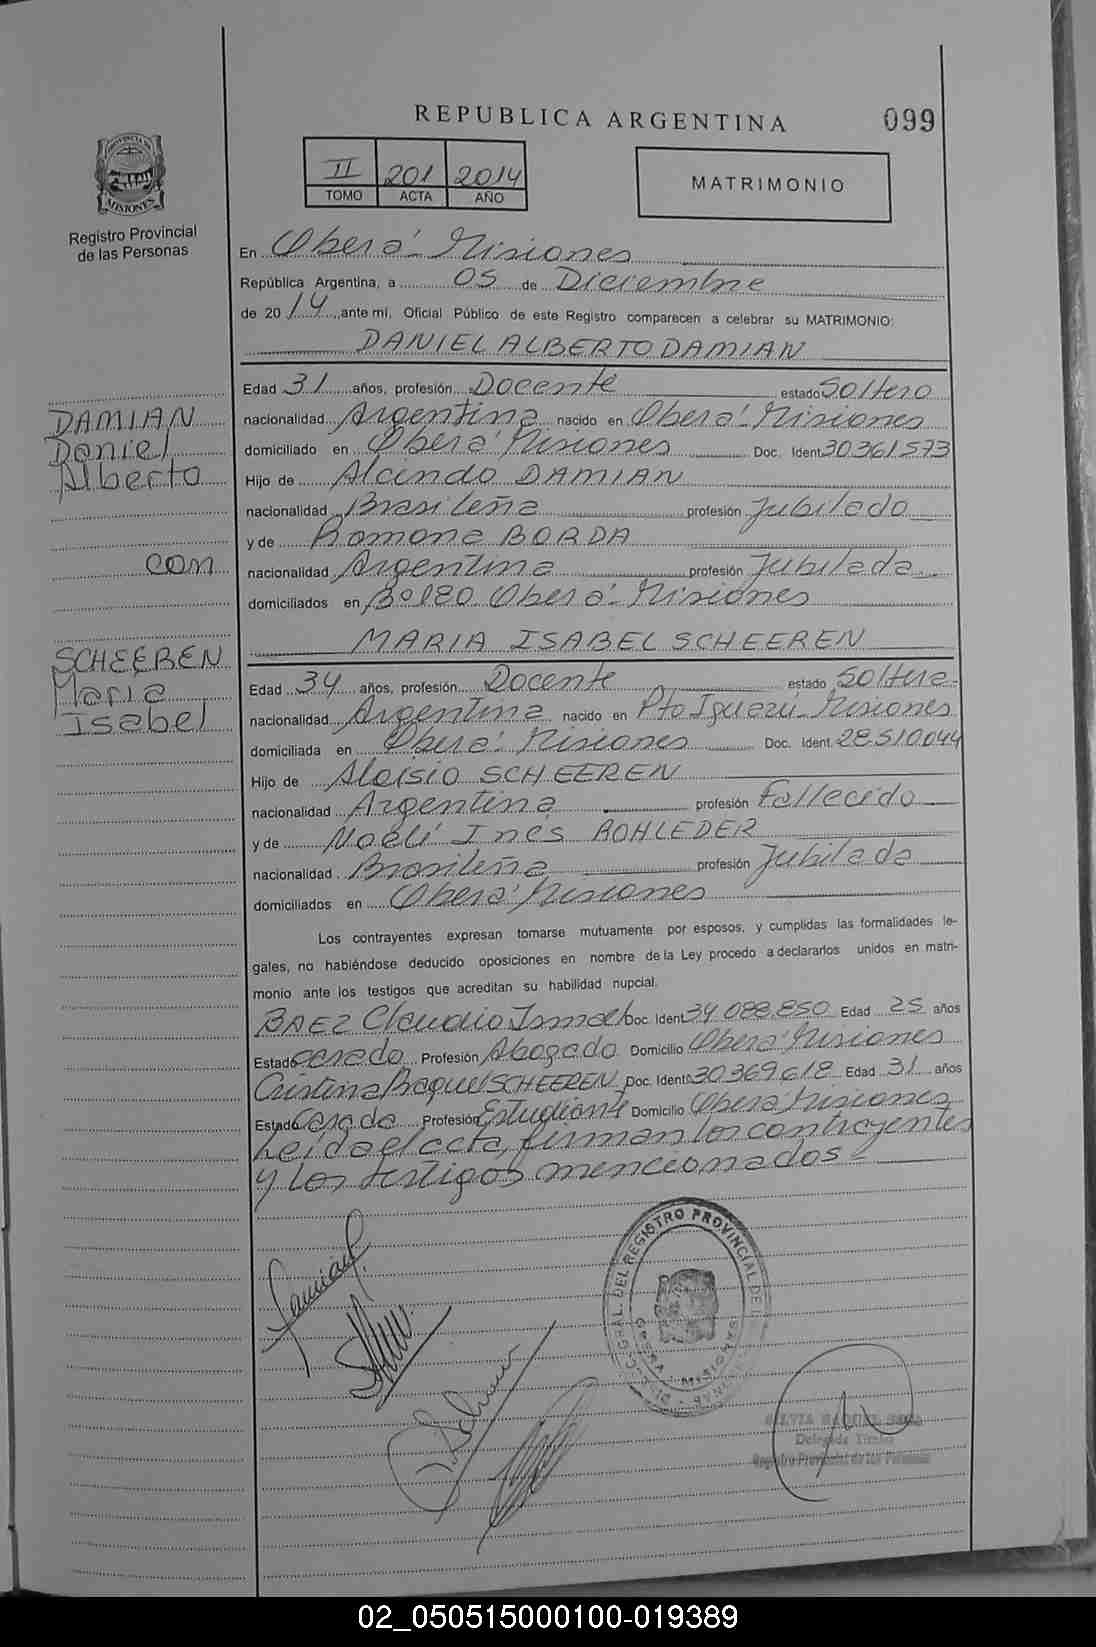 REPUBLICA ARGENTINA
099
PROVINCIA DE
MISIONES
Registro Provincial
de las Personas
II 201 2014
TOMO ACTA AÑO
MATRIMONIO
En Oberá - Misiones
República Argentina, a 05 de Diciembre
de 2014, ante mi, Oficial Público de este Registro comparecen a celebrar su MATRIMONIO:
DANIEL ALBERTO DAMIAN
Edad 31 años, profesión Docente estado Soltero
nacionalidad Argentina nacido en Oberá - Misiones
domiciliado en Oberá Misiones Doc. Ident 30361573
Hijo de Alcindo DAMIAN
nacionalidad Brasileña profesión Jubilado
y de Ramona BORDA
nacionalidad Argentina profesión Jubilada
domiciliados en Bº180 Oberá - Misiones
MARIA ISABEL SCHEEREN
Edad 34 años, profesión Docente estado Soltera
nacionalidad Argentina nacido en Pto Iguazú - Misiones
domiciliada en Oberá Misiones Doc. Ident. 28510044
Hijo de Aloisio SCHEEREN
nacionalidad Argentina profesión Fallecido
y de Noelí Inés ROHLEDER
nacionalidad Brasileña profesión Jubilada
domiciliados en Oberá Misiones
Los contrayentes expresan tomarse mutuamente por esposos, y cumplidas las formalidades le-
gales, no habiéndose deducido oposiciones en nombre de la Ley procedo a declararlos unidos en matri-
monio ante los testigos que acreditan su habilidad nupcial.
BAEZ Claudio Ismael Doc. Ident 34.088.850 Edad 25 años
Estado casado Profesión Abogado Domicilio Oberá Misiones
Cristina Raquel SCHEEREN Doc. Ident 30369618 Edad 31 años
Estado Casada Profesión Estudiante Domicilio Oberá Misiones
Leída el acta, firman los contrayentes
y los testigos mencionados
DAMIAN
Daniel
Alberto
con
SCHEEREN
Maria
Isabel
GRAL. DEL REGISTRO PROVINCIAL DE
OBERA - MISIONES
SILVIA RAQUEL
Delegada Titular
Registro Provincial de las Personas
02_050515000100-019389